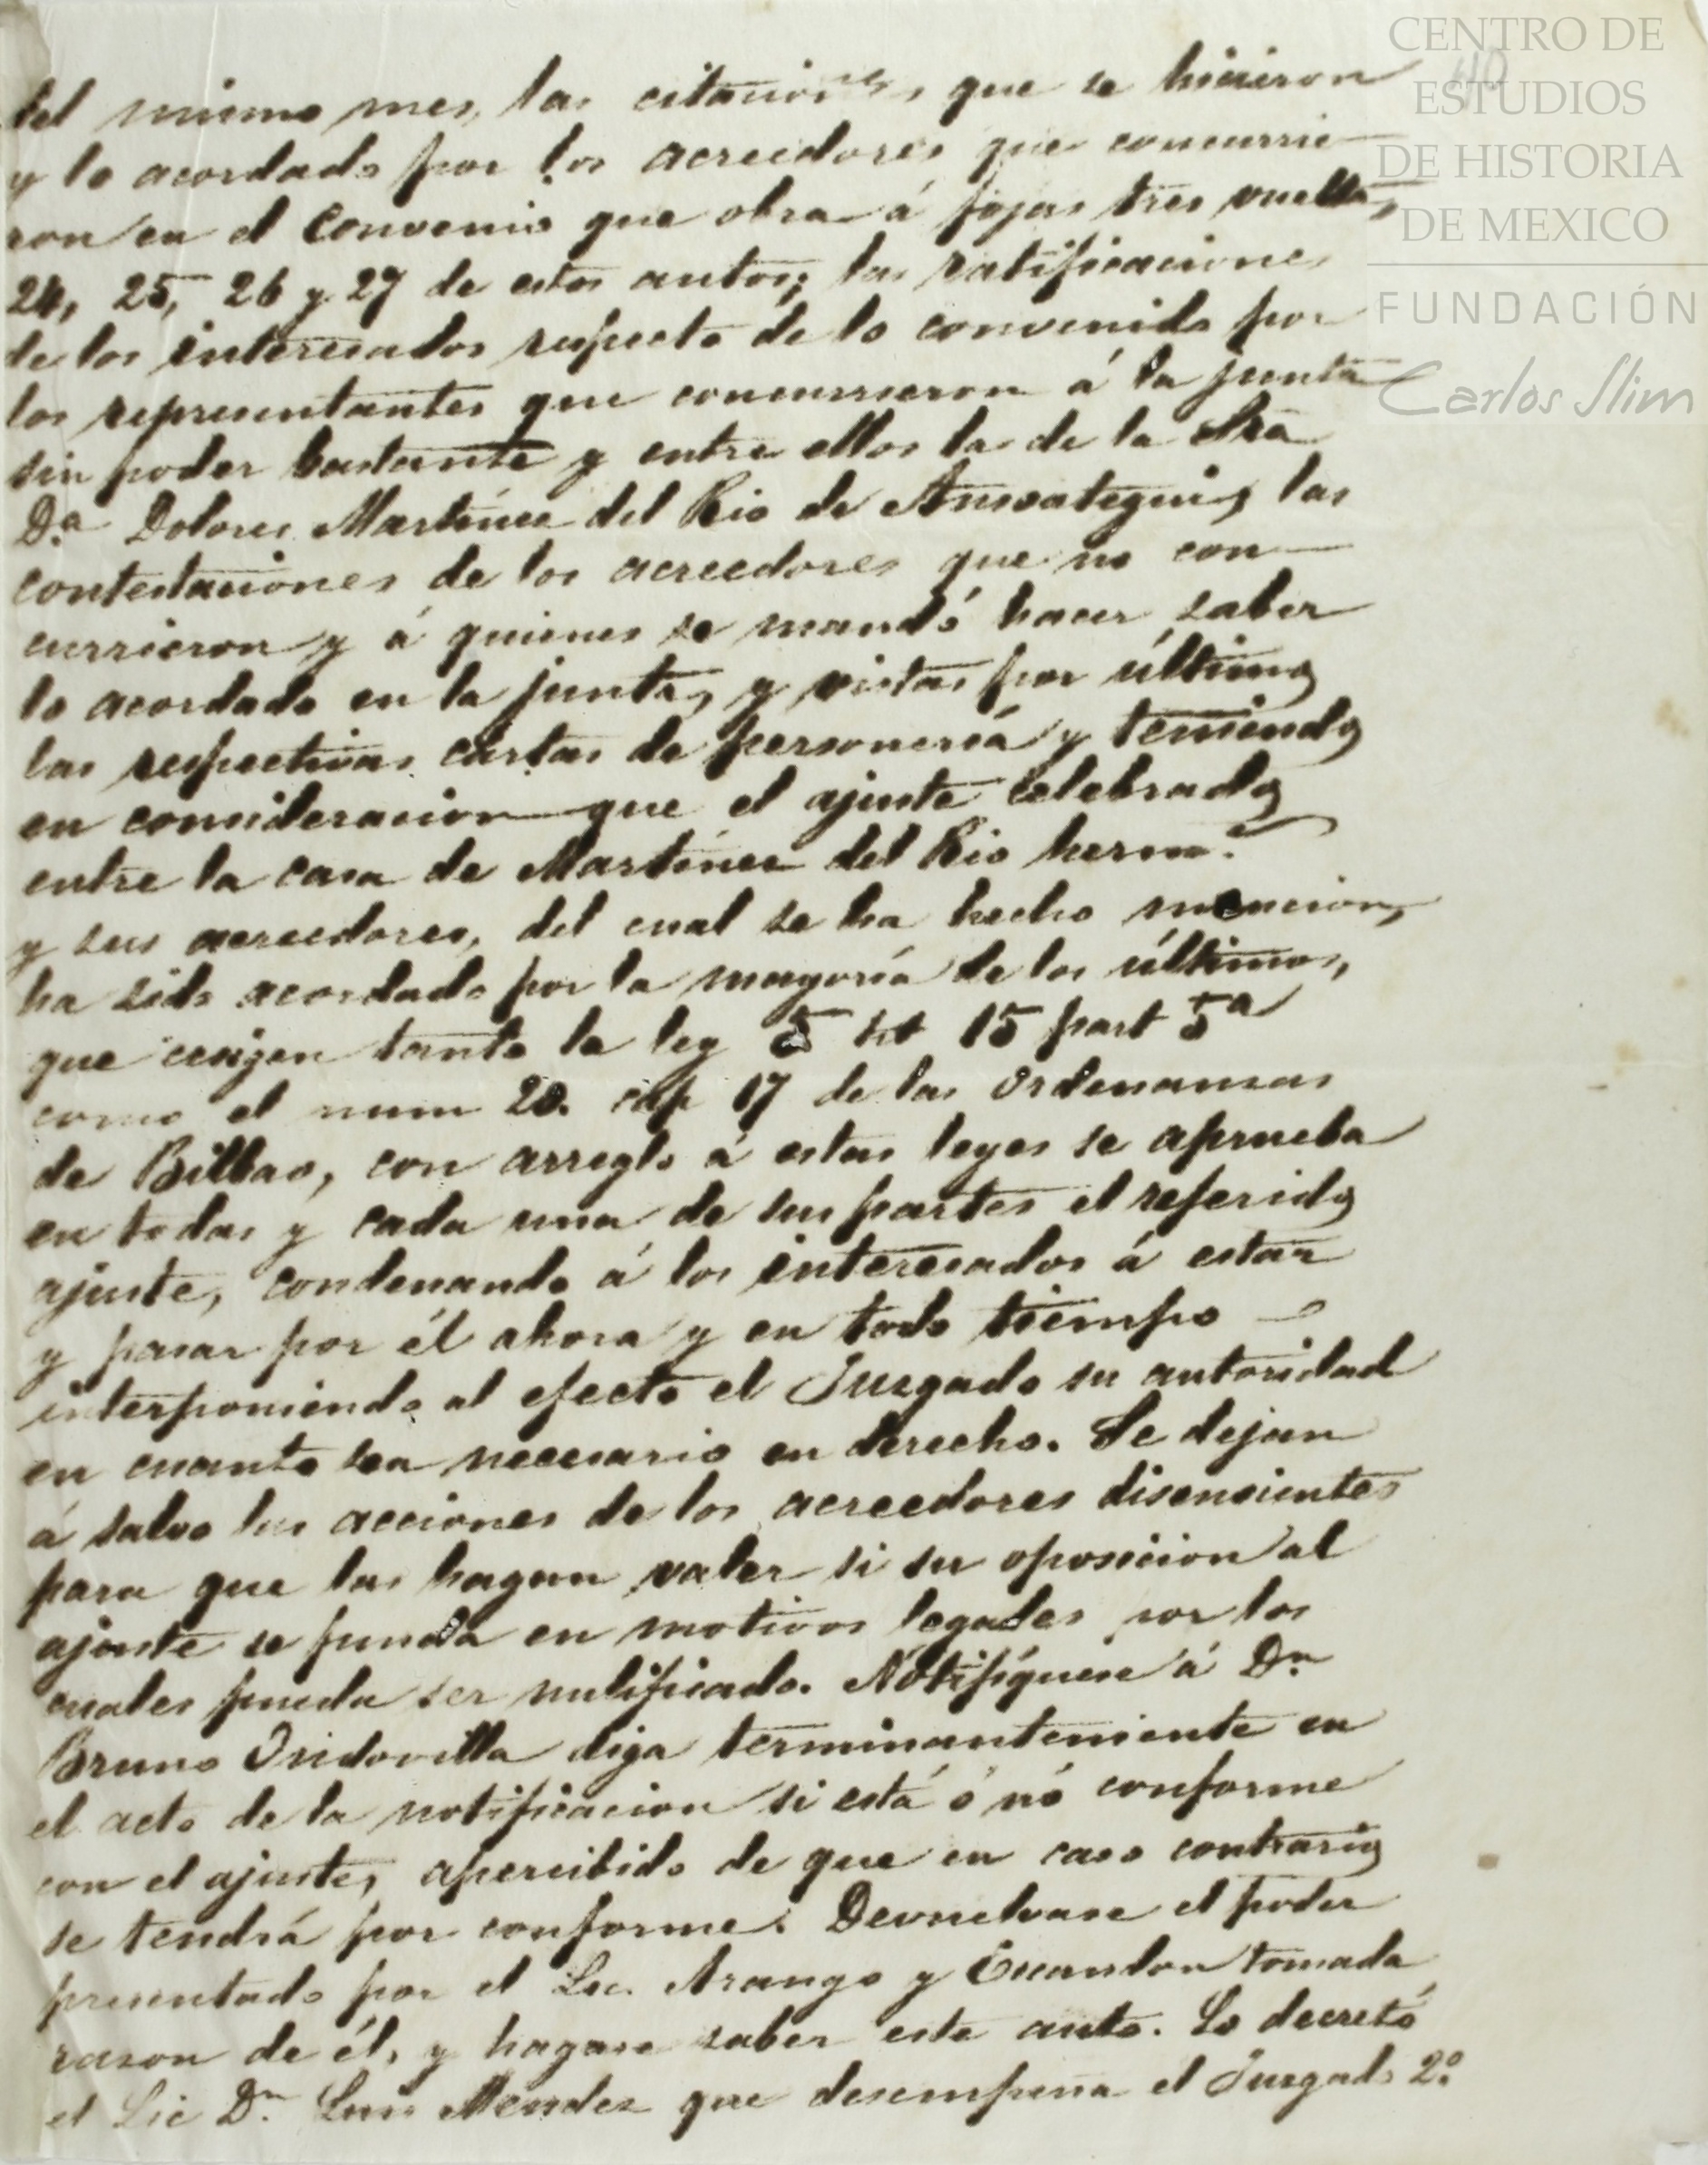 CENTRO DE
ESTUDIOS
DE HISTORIA
DE MEXICO
FUNDACIÓN
Carlos Slim
40
del mismo mes, las citaciones que se hicieron
y lo acordado por los acreedores que concurrie-
ron en el convenio que obra á fojas tres vuelta,
24, 25, 26 y 27 de estos autos; las ratificaciones
de los interesados respecto de lo convenido por
los representantes que concurrieron á la junta
sin poder bastante y entre ellos las de la Sra
D.a Dolores Martinez del Rio de Ansoategui, las
contestaciones de los acreedores que no con-
currieron y á quienes se mandó hacer saber
lo acordado en la junta, y vistas por último
las respectivas cartas de personería y teniendo
en consideracion que el ajuste celebrado
entre la casa de Martinez del Rio herm.s
y sus acreedores, del cual se ha hecho mencion,
ha sido acordado por la mayoría de los últimos,
que ecsigen tanto la ley 5 tit 15 part 5a
como el num 20. cap 17 de las Ordenanzas
de Bilbao, con arreglo á estas leyes se aprueba
en todas y cada una de sus partes el referido
ajuste, condenando á los interesados á estar
y pasar por él ahora y en todo tiempo
interponiendo al efecto el Juzgado su autoridad
en cuanto sea necesario en derecho. Se dejan
á salvo las acciones de los acreedores disensientes
para que las hagan valer si su oposicion al
ajuste se funda en motivos legales por los
cuales pueda ser nulificado. Notifíquese á Dn
Bruno diga terminantemente en
el acto de la notificacion si está ó nó conforme
con el ajuste, apercibido de que en caso contrario
se tendrá por conforme. Devuelvase el poder
presentado por el Lic. Arango y Escandon tomada
razon de él, y hagase saber este auto. Lo decretó
el Lic Dn. Luis Mendez que desempeña el Juzgado 2º